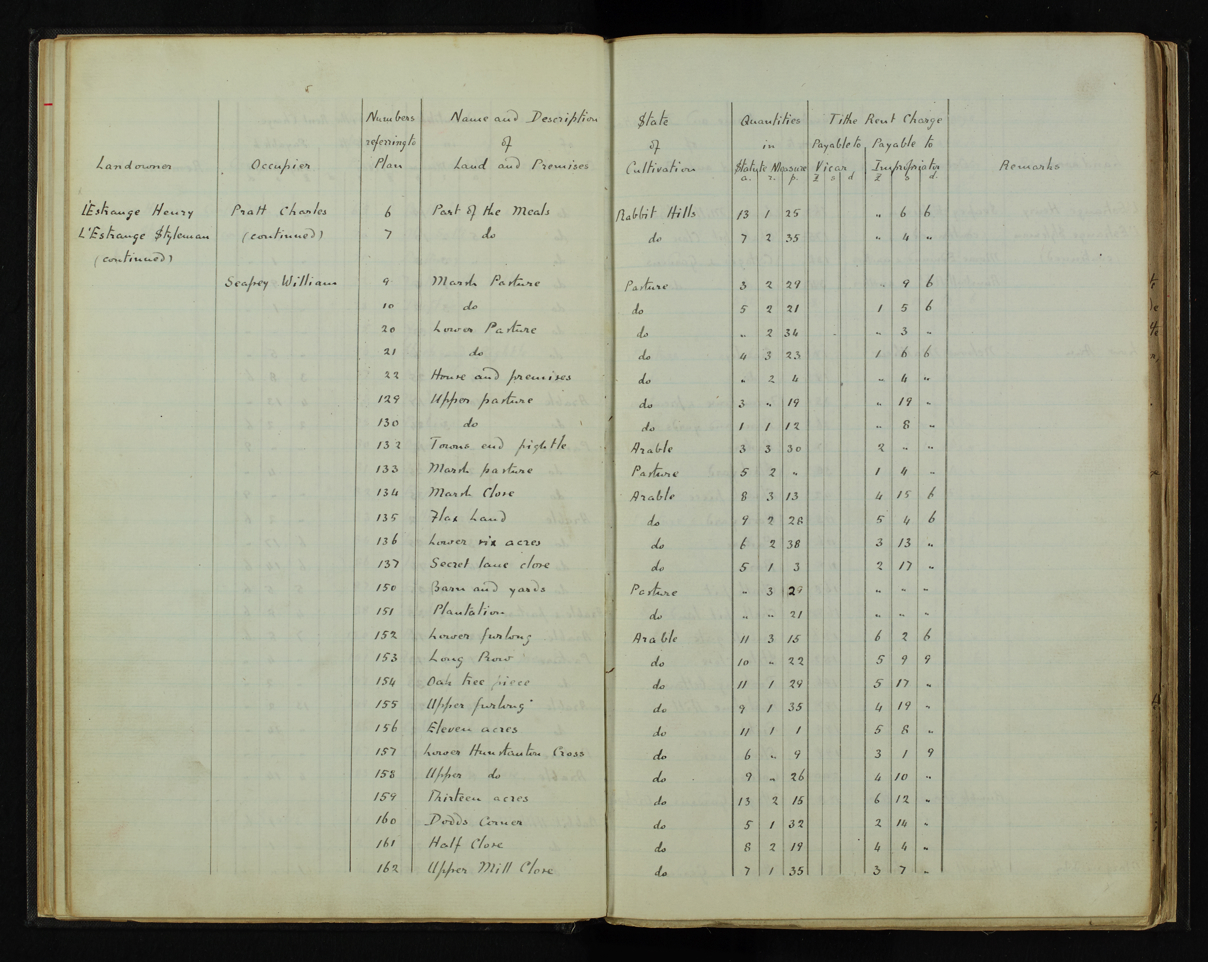 Landowner | Occupier | Numbers referring to Plan | Name and Description of Land and Premises | State of Cultivation | Quantities in Statute Measure a. r. p. | Tithe Rent Charge Payable to Vicar £ s d | Payable to Impropriator £ s d. | Remarks
L'Estrange Henry | Pratt Charles | 6 | Part of the Meals | Rabbit Hills | 13 | 1 | 25 | " | 6 | 6
L'Estrange Styleman | (continued) | 7 | do | do | 7 | 2 | 35 | " | 4 | "
(continued)
Seapey William | 9 | Marsh Pasture | Pasture | 3 | 2 | 29 | " | 9 | 6
10 | do | do | 5 | 2 | 21 | 1 | 5 | 6
20 | Lower Pasture | do | " | 2 | 34 | " | 3 | "
21 | do | do | 4 | 3 | 23 | 1 | 6 | 6
22 | House and premises | do | " | 2 | 4 | " | 4 | "
129 | Upper pasture | do | 3 | " | 19 | " | 19 | "
130 | do | do | 1 | 1 | 12 | " | 8 | "
132 | Towns end pightle | Arable | 3 | 3 | 30 | 2 | " | "
133 | Marsh pasture | Pasture | 5 | 2 | " | 1 | 4 | "
134 | Marsh Close | Arable | 8 | 3 | 13 | 4 | 15 | 6
135 | Flax Land | do | 9 | 2 | 28 | 5 | 4 | 6
136 | Lower six acres | do | 6 | 2 | 38 | 3 | 13 | "
137 | Secret lane close | do | 5 | 1 | 3 | 2 | 17 | "
150 | Barn and yards | Pasture | " | 3 | 29 | " | " | "
151 | Plantation | do | " | " | 21 | " | " | "
152 | Lower furlong | Arable | 11 | 3 | 15 | 6 | 2 | 6
153 | Long Row | do | 10 | " | 22 | 5 | 9 | 9
154 | Oak tree piece | do | 11 | 1 | 29 | 5 | 17 | "
155 | Upper furlong | do | 9 | 1 | 35 | 4 | 19 | "
156 | Eleven acres | do | 11 | 1 | 1 | 5 | 8 | "
157 | Lower Hunstanton Cross | do | 6 | " | 9 | 3 | 1 | 9
158 | Upper do | do | 9 | " | 26 | 4 | 10 | "
159 | Thirteen acres | do | 13 | 2 | 15 | 6 | 12 | "
160 | Dodds Corner | do | 5 | 1 | 32 | 2 | 14 | "
161 | Half Close | do | 8 | 2 | 19 | 4 | 4 | "
162 | Upper Mill Close | do | 7 | 1 | 35 | 3 | 7 | "